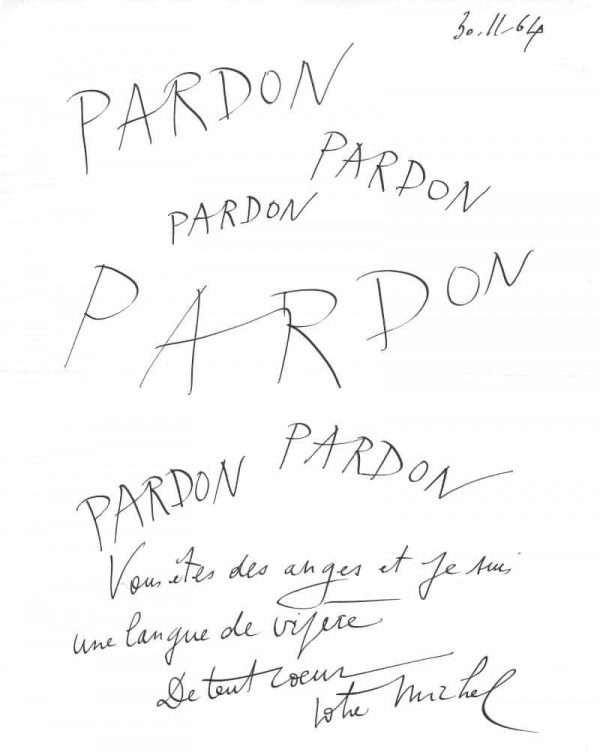 30.11.64
PARDON
PARDON
PARDON
PARDON
PARDON
PARDON
Vous êtes des anges et je suis
une langue de vipère
De tout coeur
Votre Michel